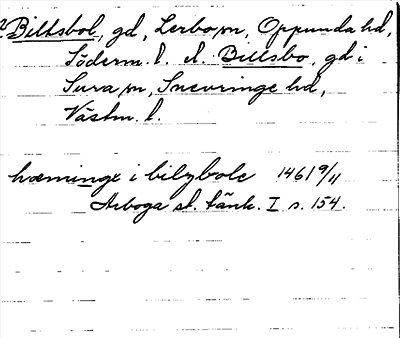 Biltsbol, gd, Lerbo sn, Oppunda hd,
Söderm. l. el. Billsbo, gd i
Sura sn, Snevringe hd,
Västm. l.
hæminge i bilzbole 1461 9/11
Arboga st. tänk. I s. 154.